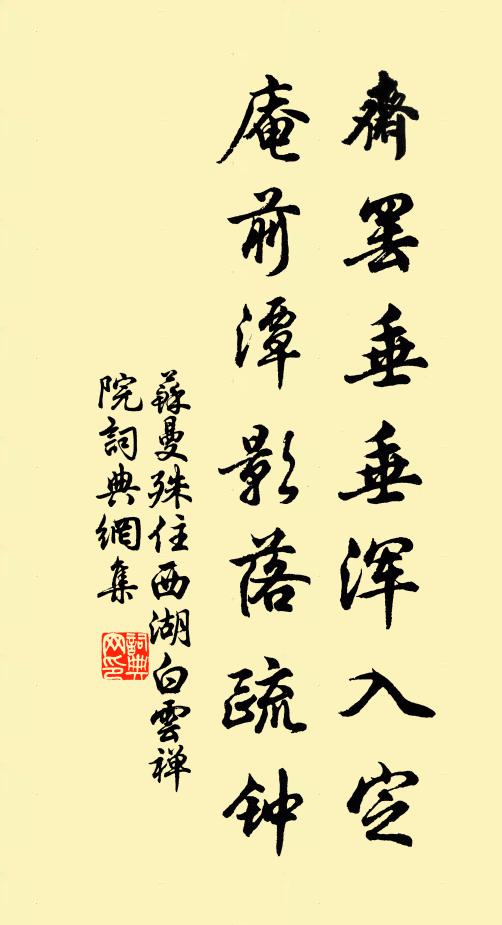 齋罢垂垂浑入定
庵前潭影落疏钟
蘇曼殊住西湖白雲禅
院詞典網集
詞典
网印